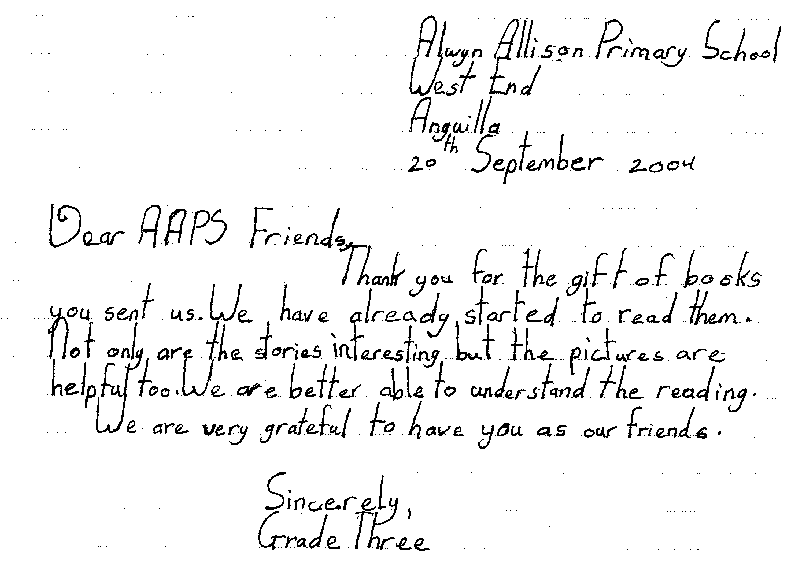 Alwyn Allison Primary School
West End
Anguilla
20th September 2004
Dear AAPS Friends,
Thank you for the gift of books
you sent us. We have already started to read them.
Not only are the stories interesting but the pictures are
helpful too. We are better able to understand the reading.
We are very grateful to have you as our friends.
Sincerely,
Grade Three